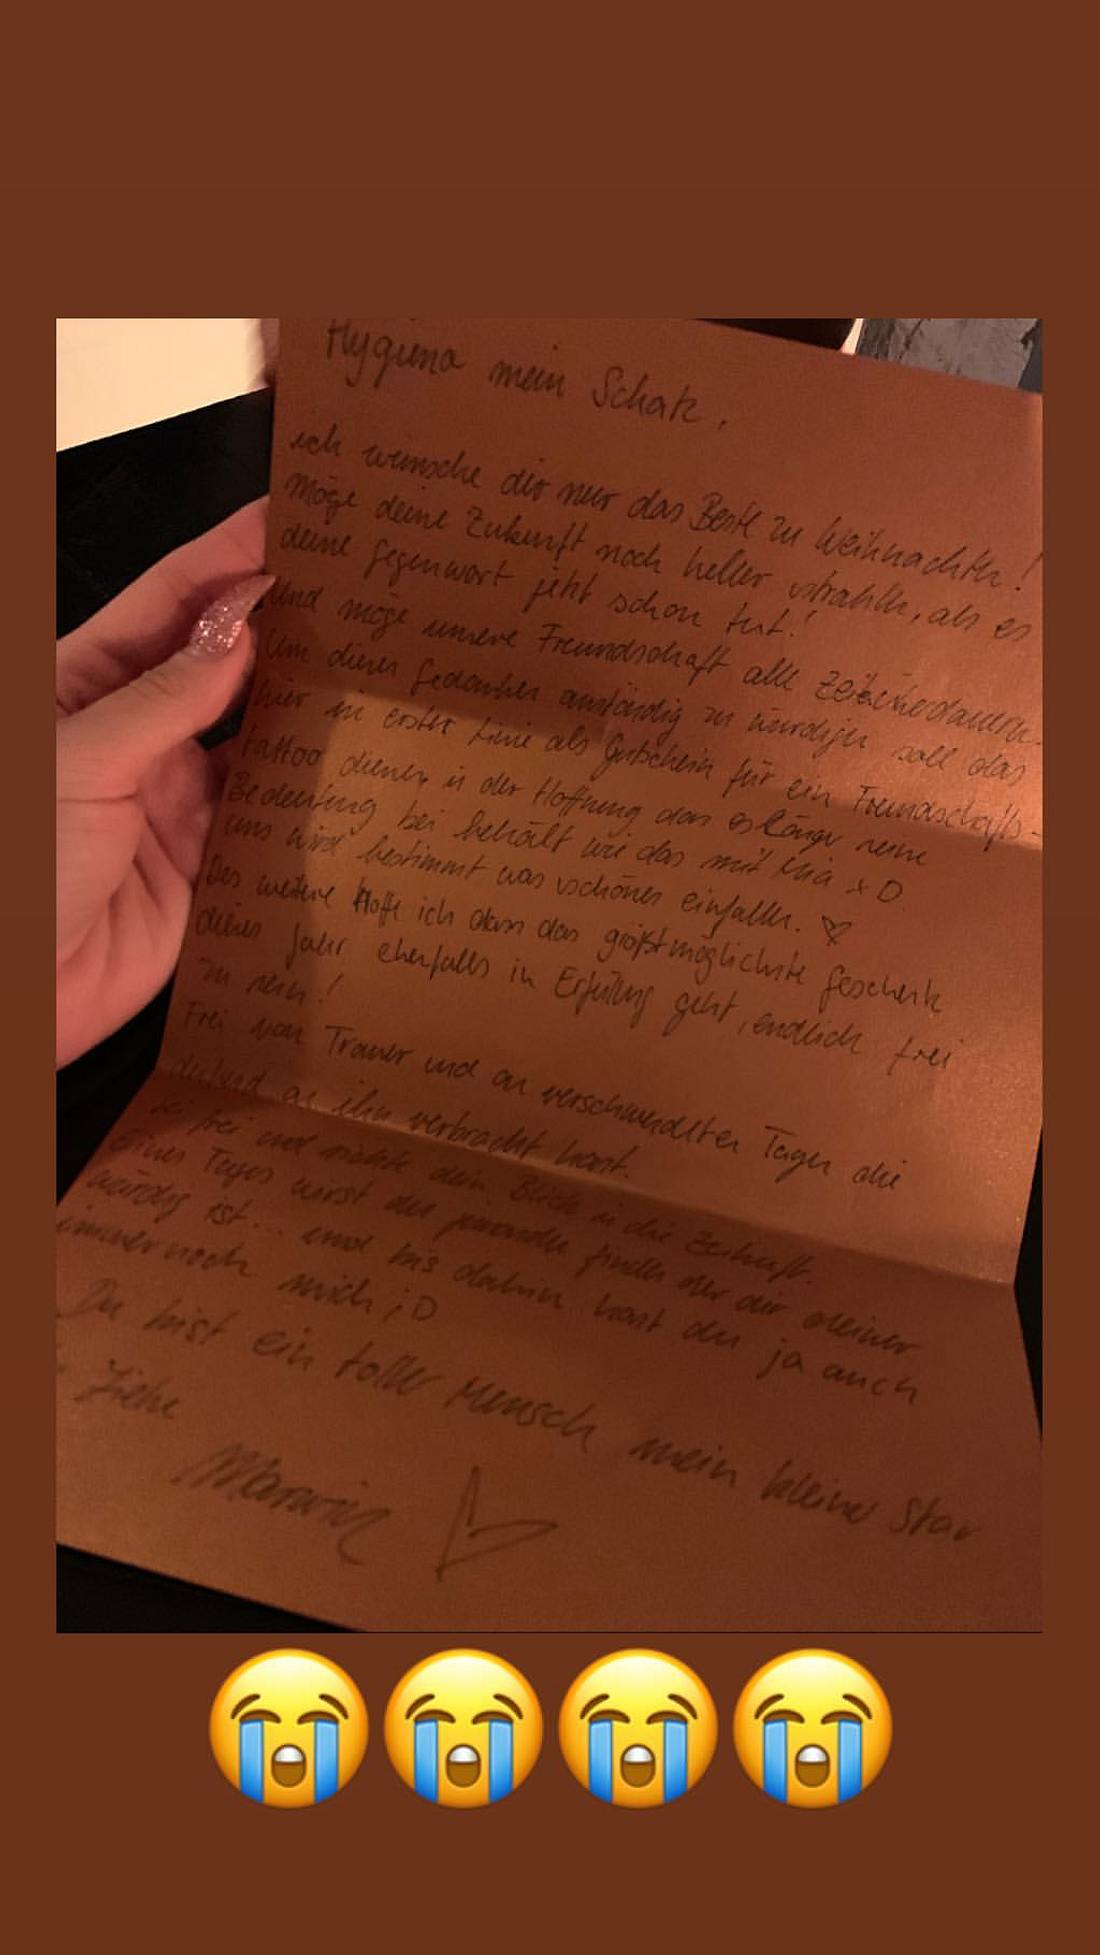 mein Schatz,
ich wünsche dir nur das Beste zu Weihnachten!
Möge deine Zukunft noch heller strahlen, als es
deine Gegenwart jetzt schon tut!
Und möge unsere Freundschaft alle Zeiten
Um diesen Gedanken anständig zu würdigen soll das
hier in erster Linie als Gutschein für ein Freundschafts-
tattoo dienen, in der Hoffnung das es länger seine
Bedeutung bei behält wie das mit Mia xD
uns wird bestimmt was schönes einfallen. ♡
Des weitere Hoffe ich dass das größtmöglichste Geschenk
dieses Jahr ebenfalls in Erfüllung geht, endlich frei
zu sein!
Frei von Trauer und an verschwendeten Tagen die
an ihn verbracht hast.
Sei frei und richte dein Blick in die Zukunft.
Eines Tages wirst du jemanden finden der dir deiner
würdig ist... und bis dahin hast du ja auch
immernoch mich ;D
Du bist ein toller Mensch mein kleiner Star
Marwin ♡
😭😭😭😭